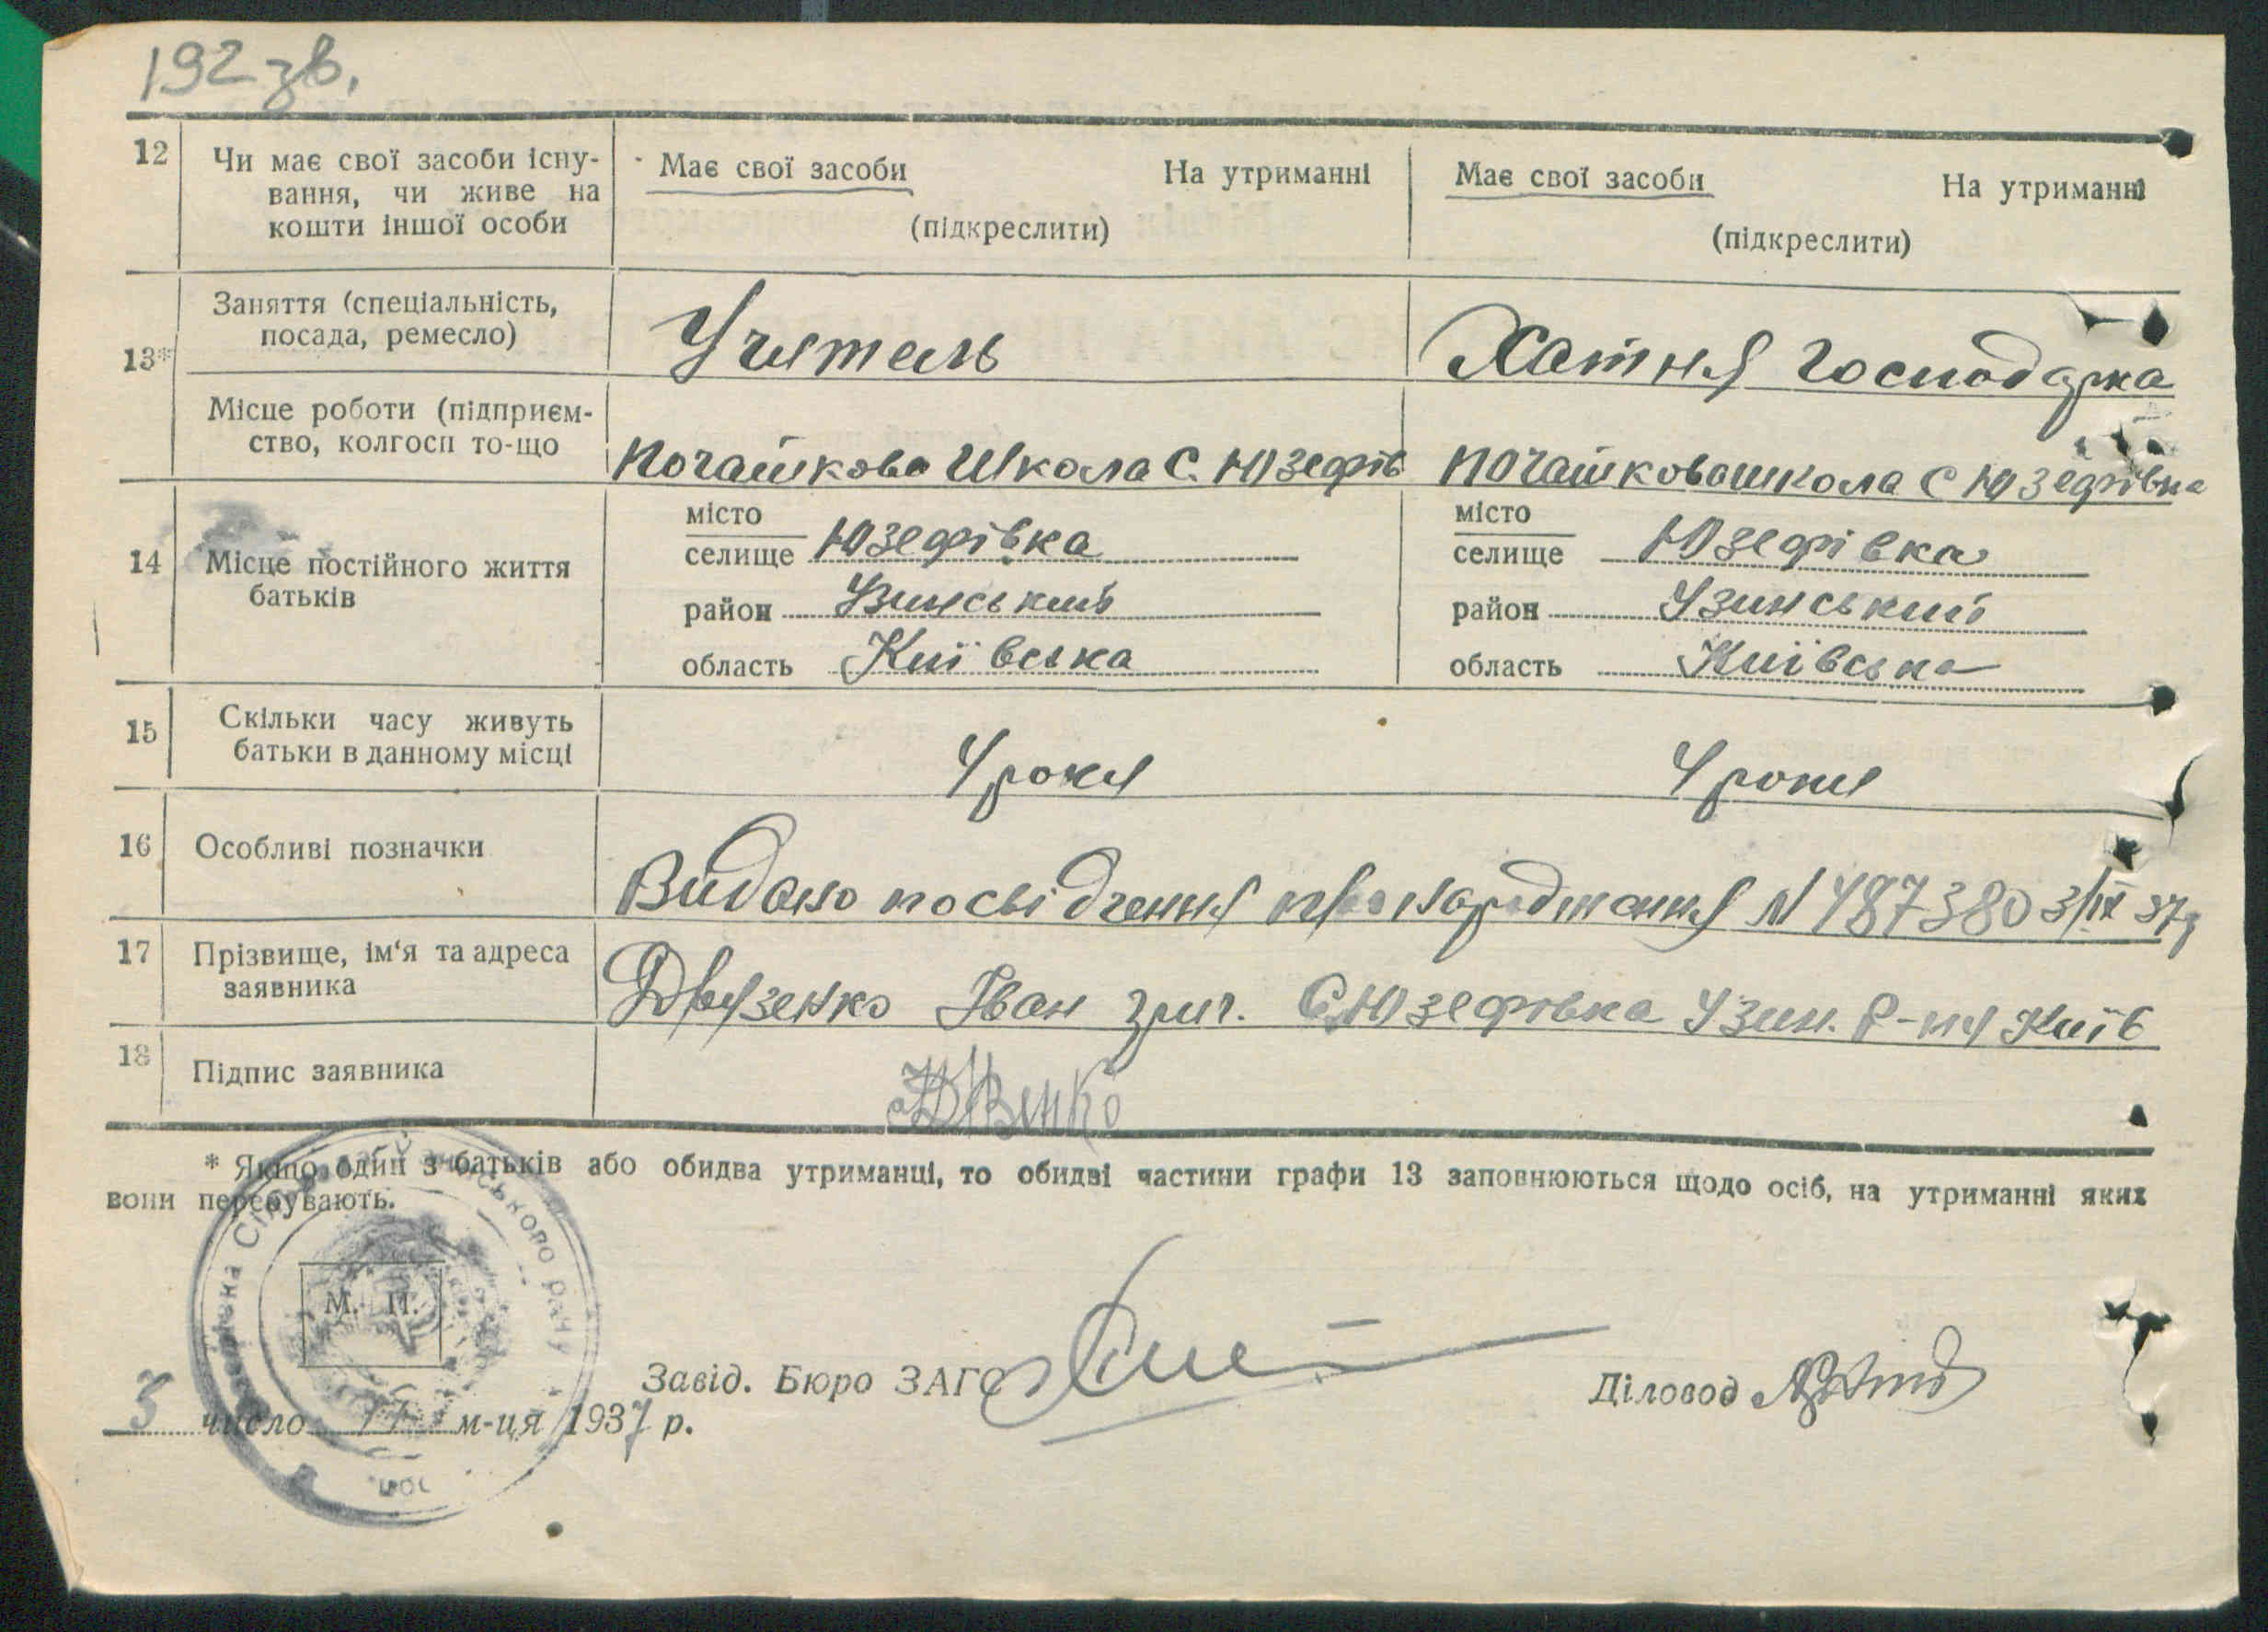 192 зв.
12 Чи має свої засоби існу-
вання, чи живе на
кошти іншої особи
Має свої засоби На утриманні
(підкреслити)
Має свої засоби На утриманні
(підкреслити)
13* Заняття (спеціальність,
посада, ремесло)
Учитель
Хатня господарка
Місце роботи (підприєм-
ство, колгосп то-що
Почашкова Школа С. Юзефів
Почашкова школа С Юзефівка
14 Місце постійного життя
батьків
місто
селище Юзефівка
район Узинський
область Київська
місто
селище Юзефівка
район Узинський
область Київська
15 Скільки часу живуть
батьки в данному місці
4 роки
4 роки
16 Особливі позначки
Видано посвідчення про народження N 487380 3/ІХ 37р
17 Прізвище, ім'я та адреса
заявника
Іван Григ. С. Юзефівка Узин. Р-ну Київ
18 Підпис заявника
* Якщо один з батьків або обидва утриманці, то обидві частини графи 13 заповнюються щодо осіб, на утриманні яких
вони перебувають.
М. П.
Завід. Бюро ЗАГС
Діловод
3 число ІХ м-ця 1937 р.